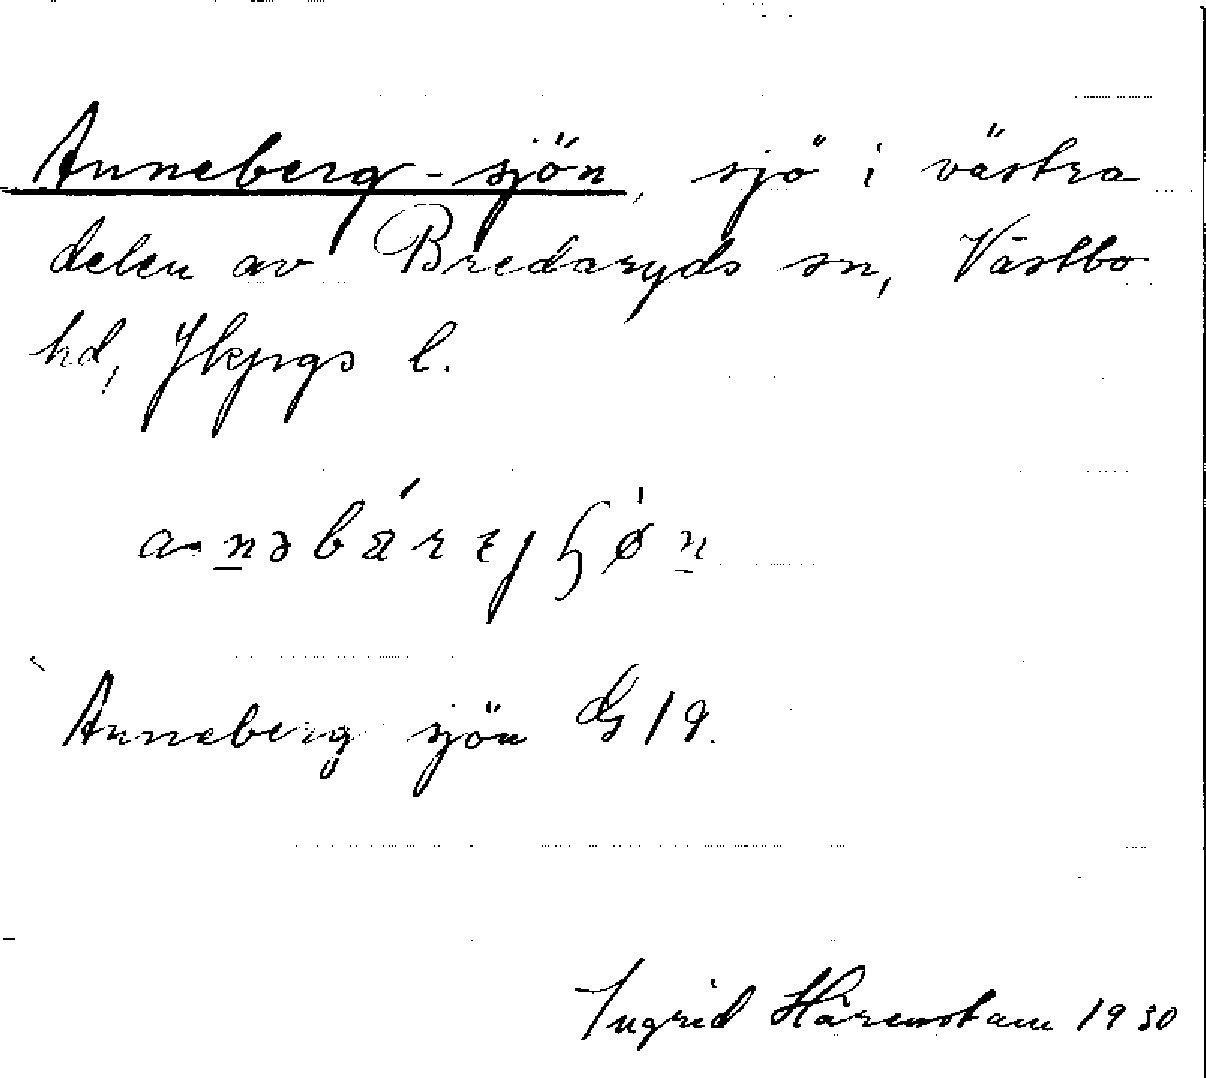 Anneberg-sjön, sjö i västra
delen av Bredaryds sn, Västbo
hd, Jkpgs l.
Anneberg sjön GS 19.
Ingrid Härenstam 1930